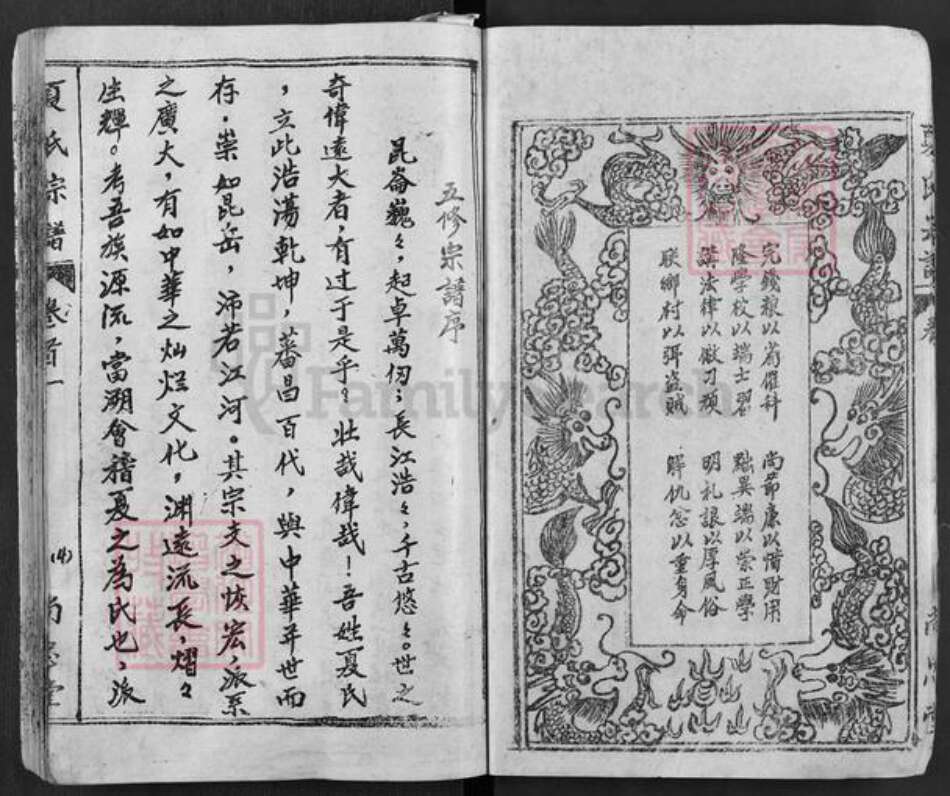 完錢粮以省催科
尚節廉以惜財用
隆學校以端士習
黜異端以崇正學
講法律以儆刁頑
明礼讓以厚風俗
联鄉村以弭盗賊
解仇忿以重身命
五修宗譜序
昆崙巍々，起卓萬仞；長江浩々，千古悠々。世之
奇偉遠大者，有过于是乎？壮哉偉哉！吾姓夏氏
，立此浩蕩乾坤，蕃昌百代，與中華并世而
存．崇如昆岳，沛若江河。其宗支之恢宏，派系
之廣大，有如中華之灿烂文化，渊遠流長，熠々
生輝。考吾族源流，當溯會稽夏之為氏也，派
夏氏宗譜 卷首一
(4)
FamilySearch